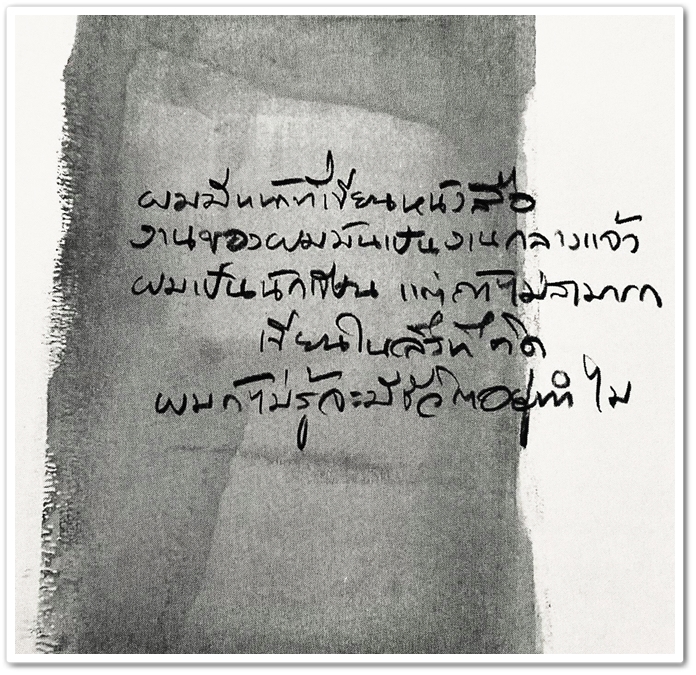 ผมมีหน้าที่เขียนหนังสือ
งานของผมมันเป็นงานกลางแจ้ง
ผมเป็นนักเขียน แต่ถ้าไม่สามารถ
เขียนในสิ่งที่คิด
ผมก็ไม่รู้จะมีชีวิตอยู่ทำไม